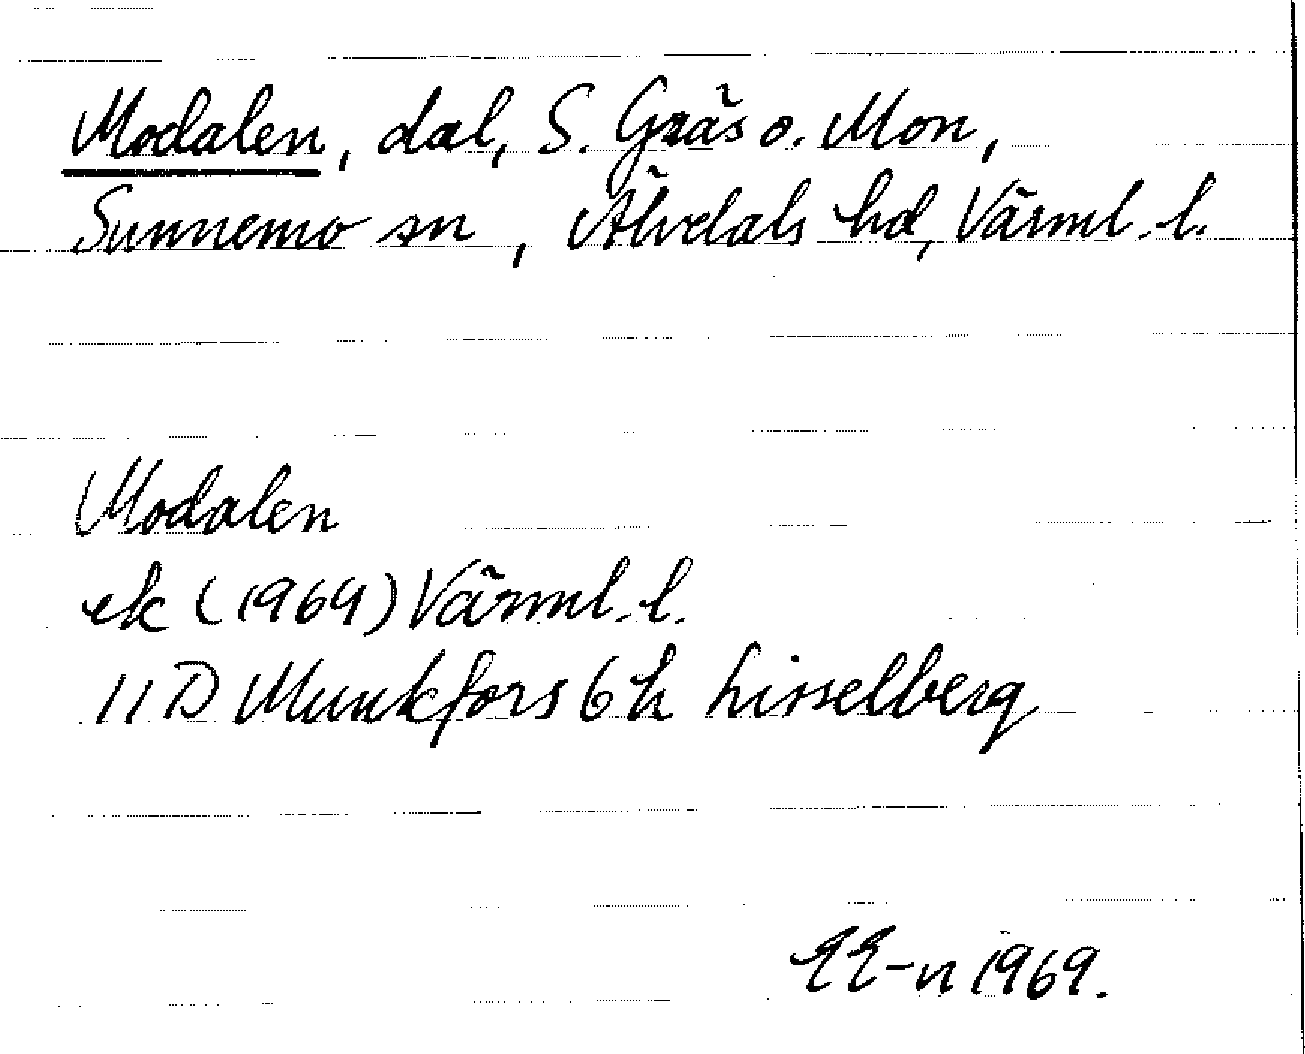 Modalen, dal, S. Gräs o. Mon,
Sunnemo sn, Älvdals hd, Värml. l.
Modalen
ek (1969) Värml. l.
11 D Munkfors 6 h Lisselberg
EE-n 1969.